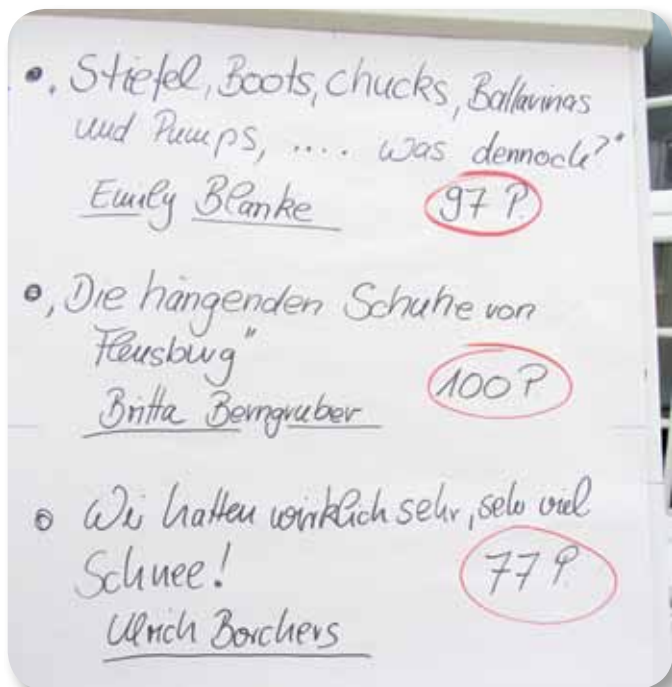 • „Stiefel, Boots, Chucks, Ballarinas
und Pumps, .... was dennoch?"
Emily Blanke 97 P.
• „Die hängenden Schuhe von
Flensburg"
100 P
Britta Bemgruber
• Wir hatten wirklich sehr, sehr viel
Schnee!
77 P.
Ulrich Borchers